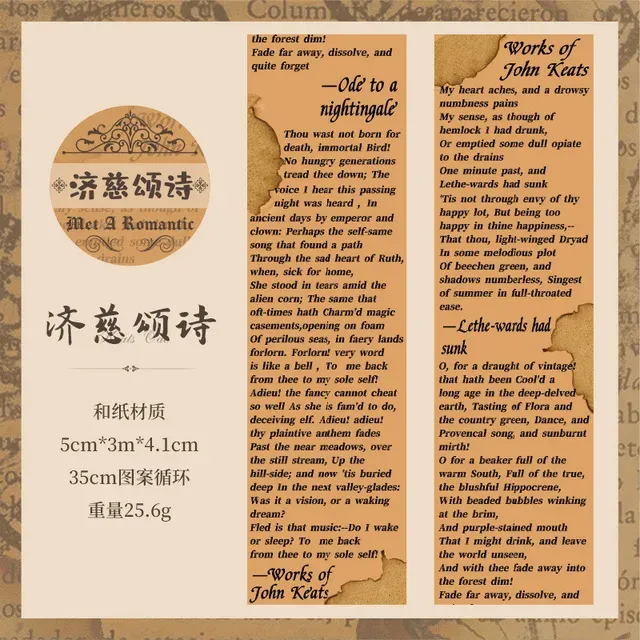 济慈颂诗
Met A Romantic
济慈颂诗
和纸材质
5cm*3m*4.1cm
35cm图案循环
重量25.6g
the forest dim!
Fade far away, dissolve, and
quite forget
—Ode to a
nightingale
Thou wast not born for
death, immortal Bird!
No hungry generations
tread thee down; The
voice I hear this passing
night was heard , In
ancient days by emperor and
clown: Perhaps the self-same
song that found a path
Through the sad heart of Ruth,
when, sick for home,
She stood in tears amid the
alien corn; The same that
oft-times hath Charm'd magic
casements,opening on foam
Of perilous seas, in faery lands
forlorn. Forlorn! very word
is like a bell , To me back
from thee to my sole self!
Adieu! the fancy cannot cheat
so well As she is fam'd to do,
deceiving elf. Adieu! adieu!
thy plaintive anthem fades
Past the near meadows, over
the still stream, Up the
hill-side; and now 'tis buried
deep In the next valley-glades:
Was it a vision, or a waking
dream?
Fled is that music:--Do I wake
or sleep? To me back
from thee to my sole self!
—Works of
John Keats
Works of
John Keats
My heart aches, and a drowsy
numbness pains
My sense, as though of
hemlock I had drunk,
Or emptied some dull opiate
to the drains
One minute past, and
Lethe-wards had sunk
'Tis not through envy of thy
happy lot, But being too
happy in thine happiness,--
That thou, light-winged Dryad
In some melodious plot
Of beechen green, and
shadows numberless, Singest
of summer in full-throated
ease.
—Lethe-wards had
sunk
O, for a draught of vintage!
that hath been Cool'd a
long age in the deep-delved
earth, Tasting of Flora and
the country green, Dance, and
Provencal song, and sunburnt
mirth!
O for a beaker full of the
warm South, Full of the true,
the blushful Hippocrene,
With beaded bubbles winking
at the brim,
And purple-stained mouth
That I might drink, and leave
the world unseen,
And with thee fade away into
the forest dim!
Fade far away, dissolve, and